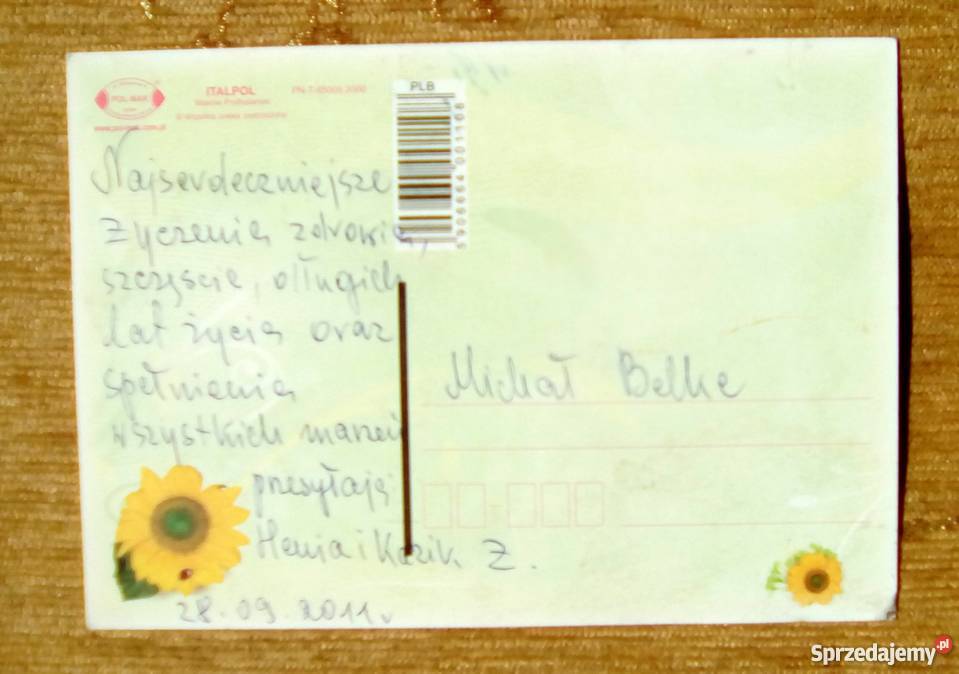 POL-MAK
www.pol-mak.com.pl
ITALPOL
PN-T-85005:2000
PLB
5906664001108
Najserdeczniejsze
życzenia zdrowia,
szczęście, długich
lat życia oraz
spełnienia
wszystkich marzeń
przesyłają
Henia i Kazik Z.
28.09.2011r
Michał Belke
Sprzedajemy.pl